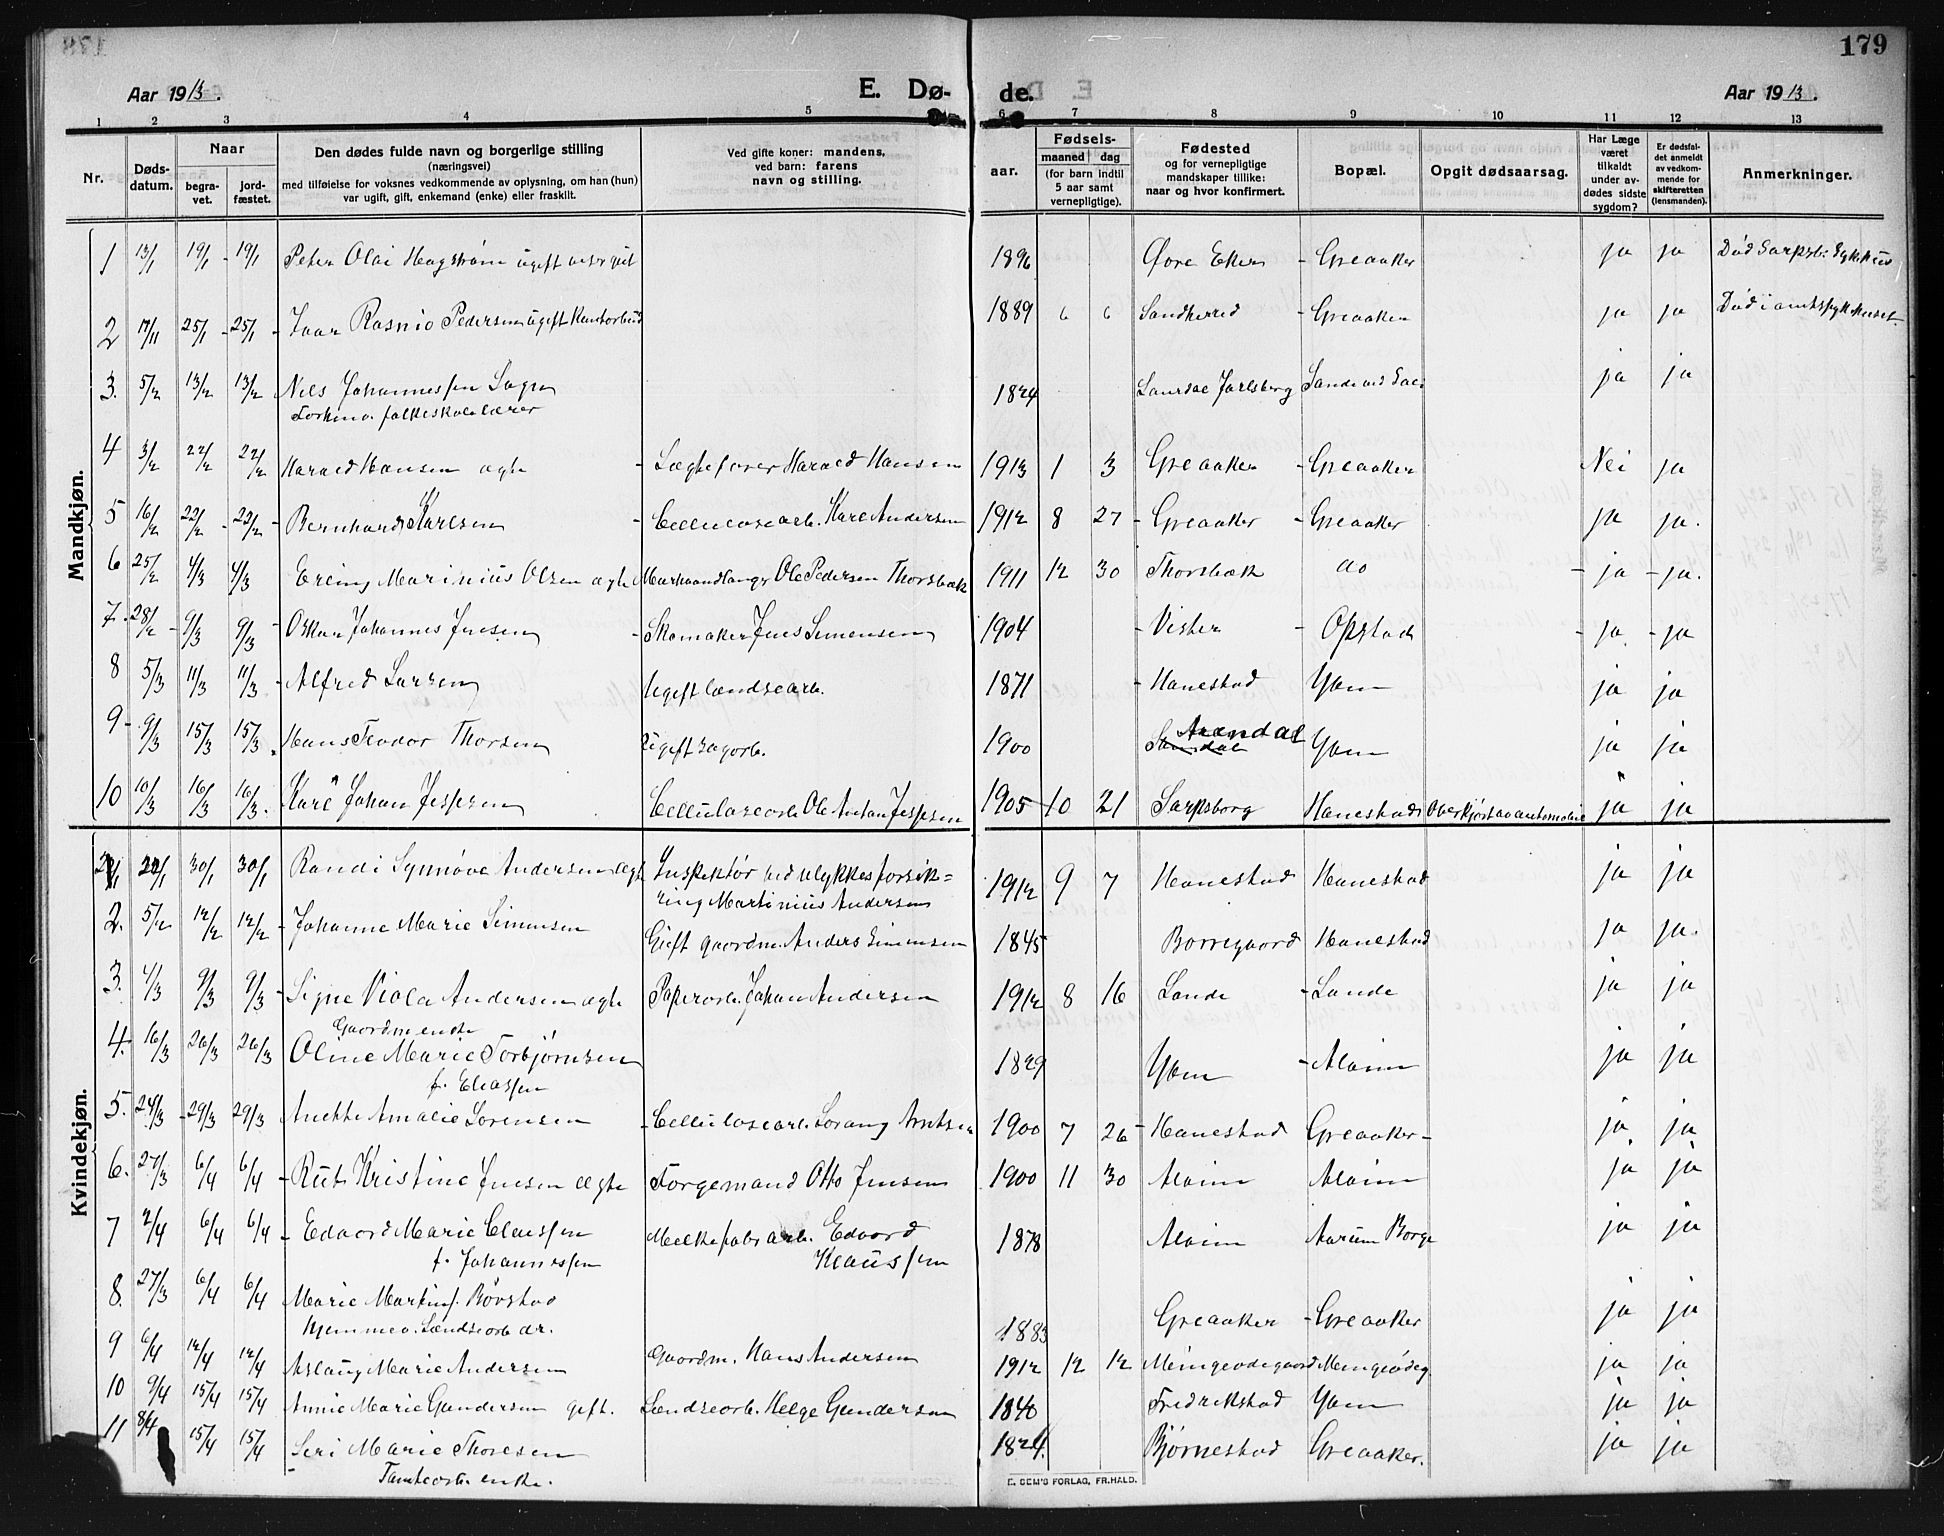 179
Aar 1913.
E. Dø-
de.
Aar 1913.
1 2 3 4 5 6 7 8 9 10 11 12 13
Nr.
Døds-
datum.
Naar
begra-
vet.
jord-
fæstet.
Den dødes fulde navn og borgerlige stilling
(næringsvei)
med tilføielse for voksnes vedkommende av oplysning, om han (hun)
var ugift, gift, enkemand (enke) eller fraskilt.
Ved gifte koner: mandens,
ved barn: farens
navn og stilling.
aar.
Fødsels-
maaned dag
(for barn indtil
5 aar samt
vernepligtige).
Fødested
og for vernepligtige
mandskaper tillike:
naar og hvor konfirmert.
Bopæl.
Opgit dødsaarsag.
Har Læge
været
tilkaldt
under av-
dødes sidste
sygdom?
Er dødsfal-
det anmeldt
av vedkom-
mende for
skifteretten
(lensmanden).
Anmerkninger.
Mandkjøn.
1 13/1 19/1 - 19/1 Peter Olai Hagstrøm ugift 1896 Øvre Eker - Greaaker ja ja Død Sarpsb. Sykehus
2 17/11 25/1 - 25/1 - Ivar Pedersen ugift 1889 6 6 Sandherred - Greaaker ja ja Død i amtssykehuset.
3. 5/2 13/2 13/2 Nils Johannessen 1824 Jarlsberg ja ja
Forhenv. folkeskolelærer
4 3/2 22/2 22/2 Harald Hansen ægte - Harald Hansen 1913 1 3 Greaaker - Greaaker Nei ja
5 16/2 22/2 - 22/2 - Bernhard Karlsen - Cellulosearb. Karl Andersen 1912 8 27 - Greaaker - Greaaker ja ja.
6 25/2 4/3 4/3 Erling Marinius Olsen ægte Ole Pedersen Thorsbæk 1911 12 30 Thorsbæk do - ja - ja.
7. 28/2 - 9/3 9/3 - Oskar Johannes Jensen - Skomaker Jens Simensen 1904 - Vister - Opstad - ja. - ja
8 5/3 11/3 11/3 - Alfred Larsen Ugift landsearb. 1871 - Hanestad Yven ja ja
9 - 9/3 15/3 15/3. Hans Teodor Thorsen Ugift sagarb. 1900 Arendal Yven ja ja
10 10/3 16/3 16/3. Karl Johan Jespsen Cellulosearb. Ole Anton Jespsen 1905 10 21 Sarpsborg Hanestad Overkjørt av automobil ja ja
Kvindekjøn.
1 22/1 30/1 30/1 Randi Synnøve Andersen ægte Inspektør ved ulykkesforsik=
ring Martinius Andersen 1912 9 7 Hanestad Hanestad ja ja
2. 5/2 12/2 12/2 - Johanne Marie Simensen Gift gaardm. Anders Simensen 1845 Borregaard Hanestad ja ja.
3. 4/3 9/3 9/3 - Signe Viola Andersen ægte Papirarb. Johan Andersen 1912 8 16 Lande - Lande ja ja
Gaardm enke
4. 16/3 26/3 26/3 Oline Marie Torbjørnsen 1829 Yven - Alvim ja ja
f. Eliassen
5. 24/3 - 29/3 29/3 Anette Amalie Sørensen - Cellulosearb. Sørang Arntsen 1900 7 26 - Hanestad Greaaker - ja ja
6. 27/3 6/4 6/4 - Rut Kristine Jensen ægte Torgemand Otto Jensen 1900 11 30 Alvim Alvim ja ja
7 2/4 6/4 6/4 - Edvard Marie Claussen Melkefabr arb. Edvard 1878 Alvim Aarum Borge ja ja
f. Johannessen Klaussen
8. 27/3 6/4 6/4 Marie Martins. Børstad 1883 Greaaker - Greaaker ja ja
hjemmev. Landsearb dr.
9 6/4 12/4 12/4 Aslaug Marie Andersen Gaardm. Hans Andersen 1912 12 12 Meingevdegaard Meingevdeg. ja ja
10 9/4 15/4 15/4 Annie Marie Gundersen gift. Landsearb. Helge Gundersen 1840 Fredrikstad Yven ja ja
11 8/4 15/4 15/4 - Seri Marie Thoresen 1824. Bjørnestad Greaaker. ja ja
Tomtearb. enke.
E. SEM'S FORLAG, FR.HALD.